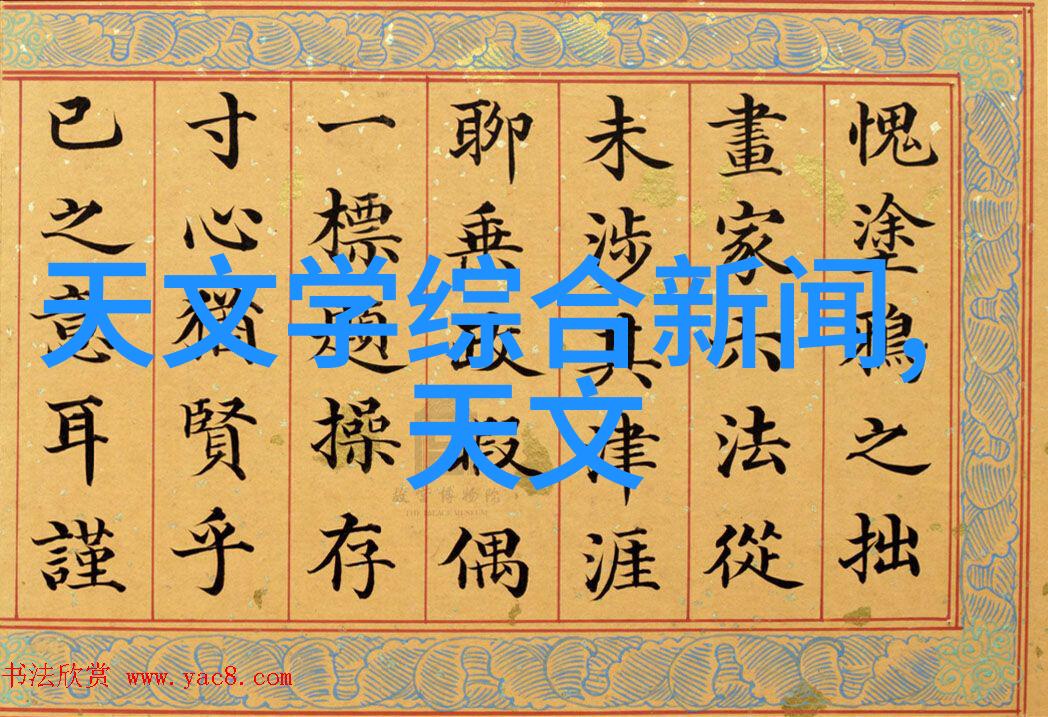 愧塗鴉之拙
畫家六法從
未涉其津涯
聊乗政暇偶
一標題操存
寸心猶賢乎
已之意耳謹
天文学综合新闻,
天文
故宫博物院
THE PALACE MUSEUM
书法欣赏 www.yac8.com